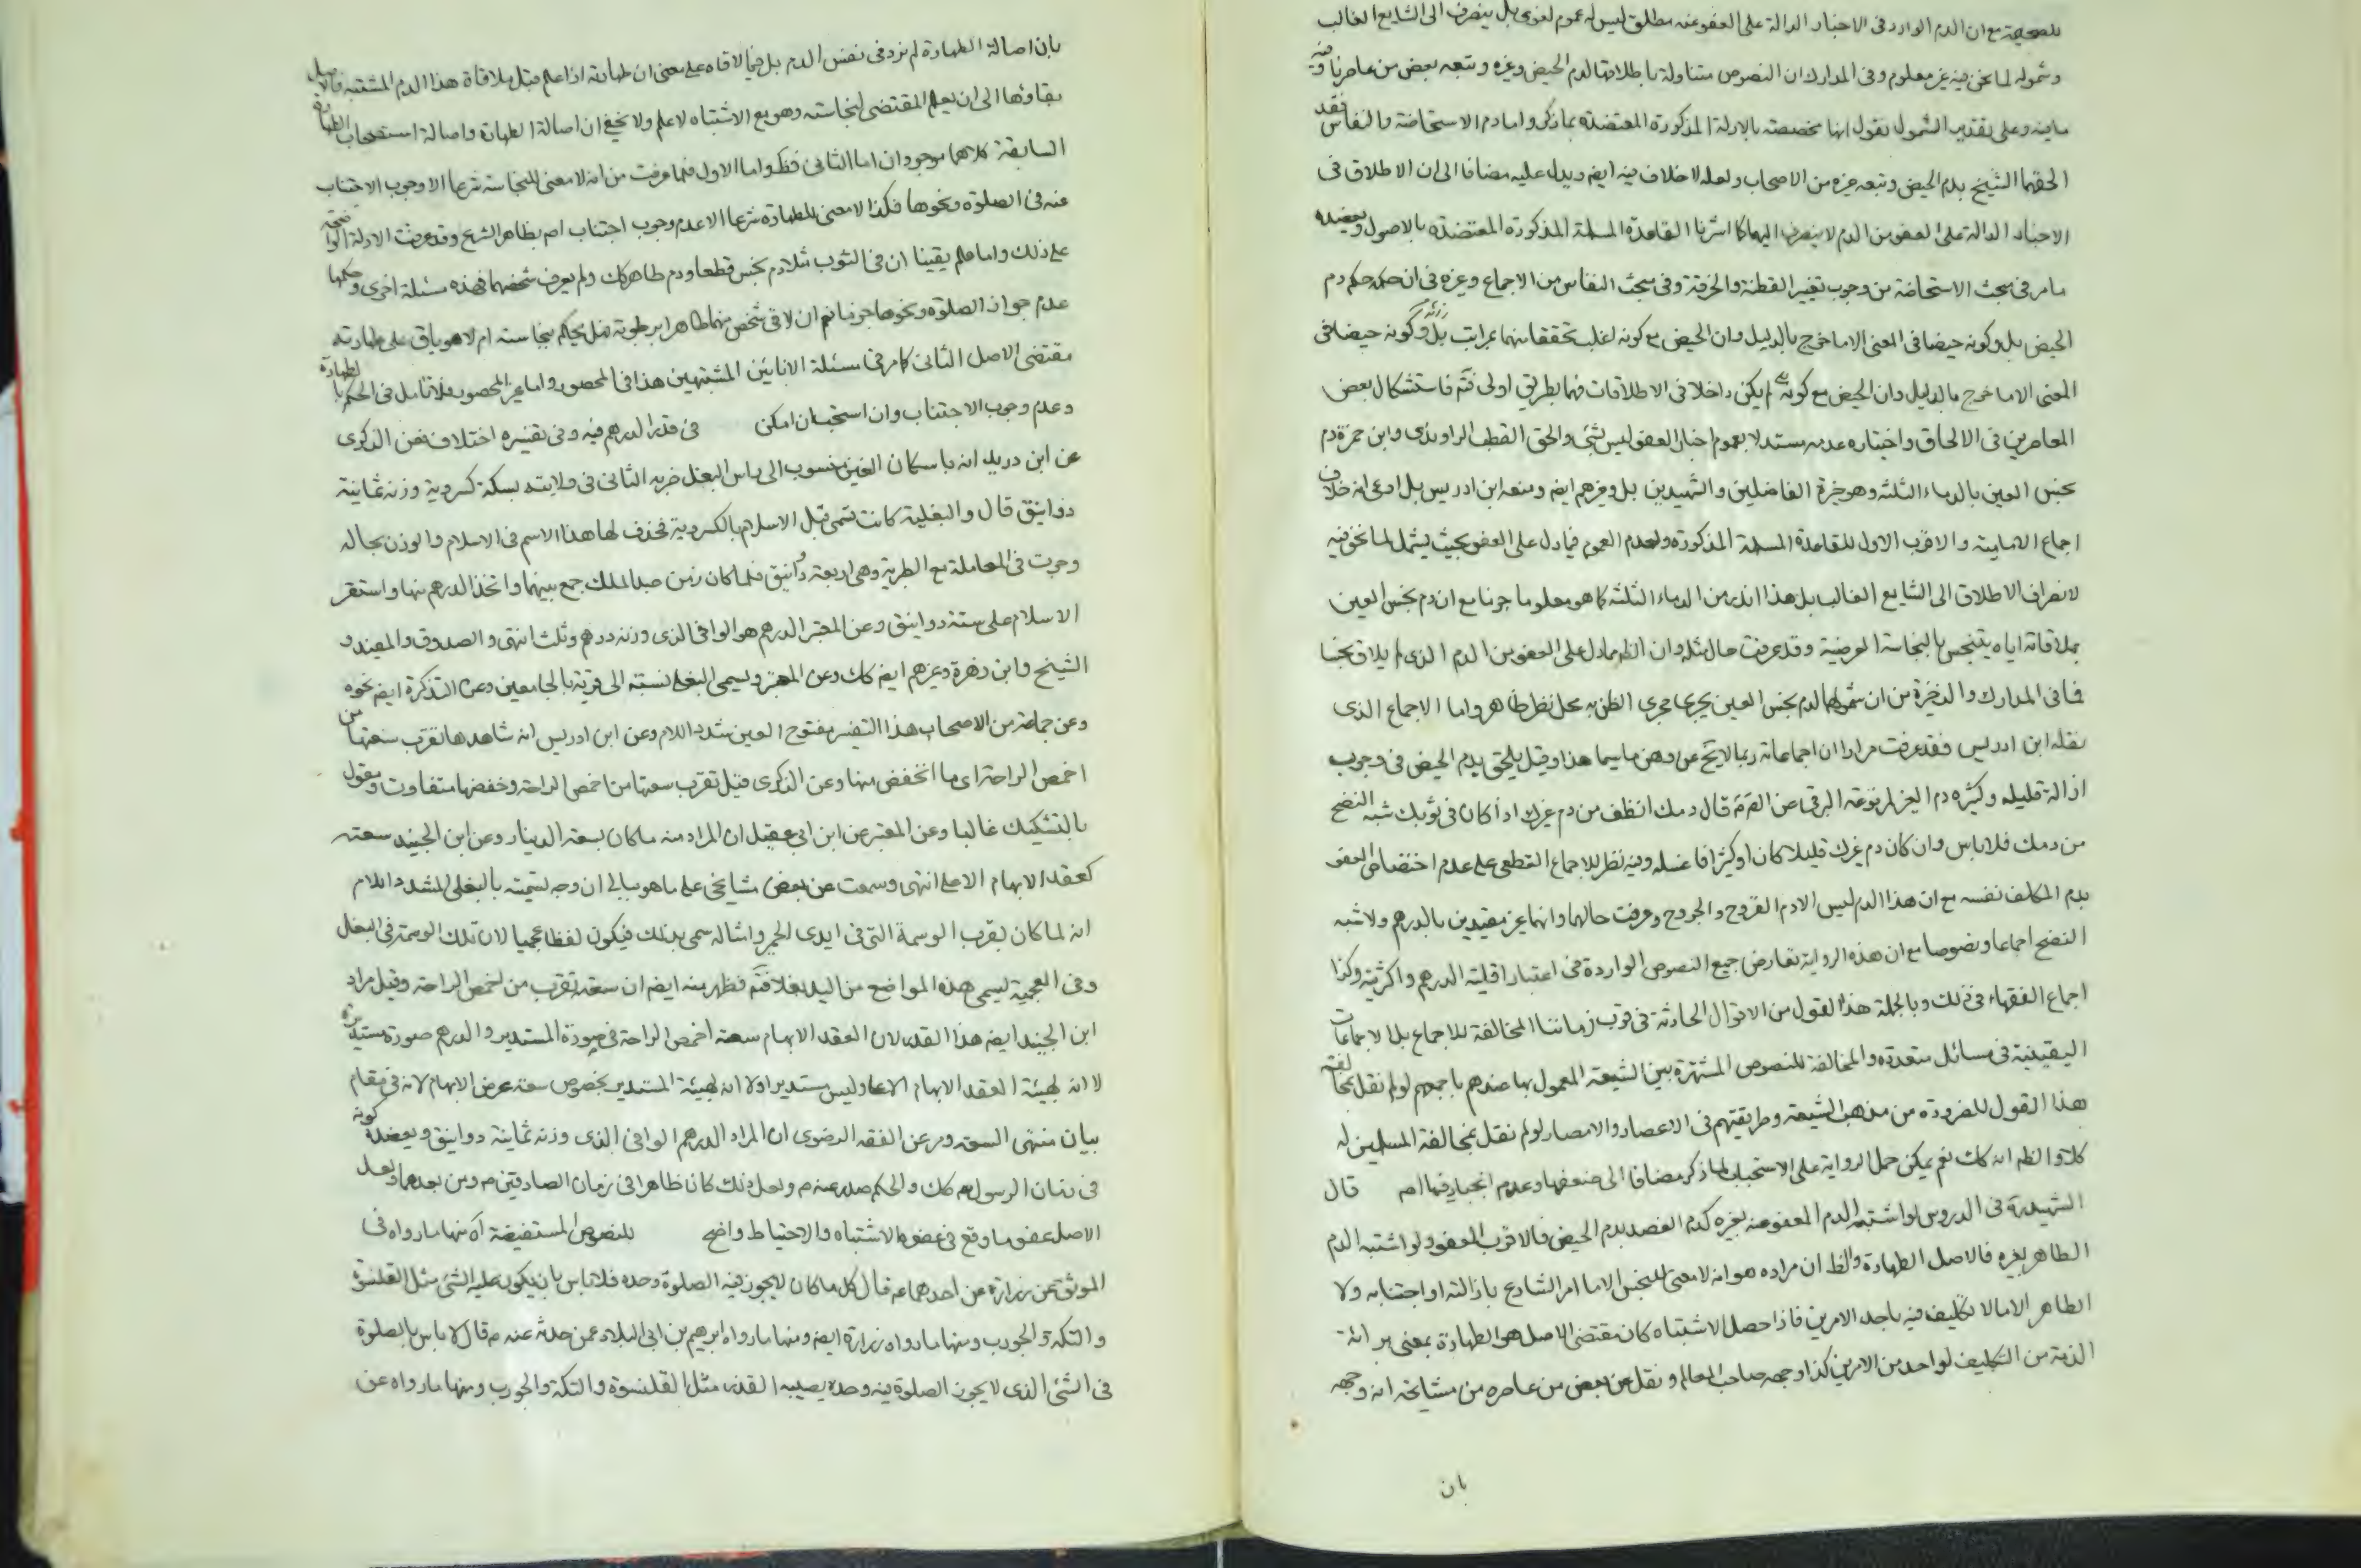 للصحيحة مع ان الدم الوارد فى الاخبار الدالة على العفو عنه مطلق ليس له عموم لغوى بل ينصرف الى الشايع الغالب
وشموله لما نحن فيه غير معلوم وفى المدارك ان النصوص متناولة باطلاقها لدم الحيض وغيره وتبعه بعض من عاصرناه وفيه
ما فيه وعلى تقدير الشمول نقول انها مخصصة بالادلة المذكورة المعتضدة بما ذكر واما دم الاستحاضة والنفاس فقد
الحقهما الشيخ بدم الحيض وتبعه غيره من الاصحاب ولعله لا خلاف فيه ايضا ويدل عليه مضافا الى ان الاطلاق فى
الاخبار الدالة على العفو من الدم لا ينصرف اليهما كما اشرنا القاعدة المسلمة المذكورة المعتضدة بالاصول ويعضده
ما مر فى مبحث الاستحاضة من وجوب تغيير القطنة والخرقة وفى مبحث النفاس من الاجماع وغيره فى ان حكمه حكم دم
الحيض بل وكونه حيضا فى المعنى الا ما خرج بالدليل وان الحيض مع كونه اغلب تحققا منهما بمراتب بل وكونه حيضا فى
المعنى الا ما خرج بالدليل وان الحيض مع كونه لم يكن داخلا فى الاطلاقات فهما بطريق اولى فتم فاستشكال بعض
المعاصرين فى الالحاق واختياره عدمه مستدلا بعموم اخبار العفو ليس بشئ والحق القطب الراوندى وابن حمزة دم
نجس العين بالدماء الثلثة وهو خيرة الفاضلين والشهيدين بل وغيرهم ايضا ومنعه ابن ادريس بل ادعى انه خلاف
اجماع الامامية والاقرب الاول للقاعدة المسلمة المذكورة ولعدم العموم فيما دل على العفو بحيث يشمل لما نحن فيه
لانصراف الاطلاق الى الشايع الغالب بل هذا اندر من الدماء الثلثة كما هو معلوم جزما مع ان دم نجس العين
بملاقاته اياه يتنجس بالنجاسة العرضية وقد عرفت حال مثله وان الظ مما دل على العفو من الدم الذى لم يلاق نجسا
فما فى المدارك والذخيرة من ان شمولها لدم نجس العين يجرى مجرى الظن به محل نظر ظاهر واما الاجماع الذى
نقله ابن ادريس فقد عرفت مرارا ان اجماعاته ربما لا يخ عن وهن ما سيما هذا وقيل يلحق بدم الحيض فى وجوب
ازالة قليله وكثيره دم الغير لمرفوعة البرقى عن الصم قال دمك انظف من دم غيرك اذا كان فى ثوبك شبه النضح
من دمك فلا باس وان كان دم غيرك قليلا كان او كثيرا فاغسله وفيه نظر للاجماع القطعى على عدم اختصاص العفو
بدم المكلف نفسه مع ان هذا الدم ليس الا دم القروح والجروح وعرفت حالهما وانهما غير مقيدين بالدرهم ولا شبه
النضح اجماعا ونصوصا مع ان هذه الرواية تعارض جميع النصوص الواردة فى اعتبار اقلية الدرهم واكثريته وكذا
اجماع الفقهاء فى ذلك وبالجملة هذا القول من الاقوال الحادثة فى قرب زماننا المخالفة للاجماع بل الاجماعات
اليقينية فى مسائل متعددة والمخالفة للنصوص المشتهرة بين الشيعة المعمول بها عندهم باجمعهم لو لم نقل بمخالفة
هذا القول للضرورة من مذهب الشيعة وطريقتهم فى الاعصار والامصار لو لم نقل بمخالفة المسلمين له
كلا والظ انه كك نعم يمكن حمل الرواية على الاستحباب لما ذكر مضافا الى ضعفها وعدم انجبارها قال
الشهيد ره فى الدروس لو اشتبه الدم المعفو عنه بغيره كدم الفصد بدم الحيض فالاقرب العفو ولو اشتبه الدم
الطاهر بغيره فالاصل الطهارة والظ ان مراده هو انه لا معنى للنجس الا ما امر الشارع بازالته او اجتنابه ولا
الطاهر الا ما لا تكليف فيه باحد الامرين فاذا حصل الاشتباه كان مقتضى الاصل هو الطهارة بمعنى برائة
الذمة من التكليف لواحد من الامرين كذا وجهه صاحب المعالم ونقل عن بعض من عاصره من مشايخه انه وجهه
بان
بان اصالة الطهارة لم نرد فى نفس الدم بل فيما لاقاه على معنى ان طهارته اذا علم قبل ملاقاة هذا الدم المشتبه فالاصل
بقاؤها الى ان يعلم المقتضى لنجاسته وهو مع الاشتباه لا علم ولا يخفى ان اصالة الطهارة واصالة استصحاب الطهارة
السابقة كلاهما موجودان اما الثانى فظ واما الاول فلما عرفت من انه لا معنى للنجاسة شرعا الا وجوب الاجتناب
عنه فى الصلوة ونحوها فكذا لا معنى للطهارة شرعا الا عدم وجوب اجتناب ام بظاهر الشرع وقد عرفت الادلة الواضحة
على ذلك واما ما علم يقينا ان فى الثوب مثلا دم نجس قطعا ودم طاهر كك ولم يعرف شخصهما فهذه مسئلة اخرى وحكمها
عدم جواز الصلوة ونحوها جزما نعم ان لاقى شخص منهما طاهرا برطوبة فهل يحكم بنجاسته ام لا هو باق على طهارته
مقتضى الاصل الثانى كما مر فى مسئلة الانائين المشتبهين هذا فى المحصور واما غير المحصور فلا تامل فى الحكم بالطهارة
وعدم وجوب الاجتناب وان استحب ان امكن فى قدر الدرهم فيه وفى تفسيره اختلاف فعن الذكرى
عن ابن دريد انه باسكان الغين منسوب الى راس البغل ضربه الثانى فى ولايته بسكة كسروية وزنه ثمانية
دوانيق قال والبغلية كانت تسمى قبل الاسلام بالكسروية فحذف لها هذا الاسم فى الاسلام والوزن بحاله
وجرت فى المعاملة مع الطبرية وهى اربعة دوانيق فلما كان زمن عبد الملك جمع بينهما واتخذ الدرهم منها واستقر
الاسلام على ستة دوانيق وعن المعتبر الدرهم هو الوافى الذى وزنه درهم وثلث انتهى والصدوق والمفيد و
الشيخ وابن زهرة وغيرهم ايضا كك وعن المعتبر ويسمى البغلى نسبته الى قرية بالجامعين وعن التذكرة ايضا نحوه
وعن جماعة من الاصحاب هذا التفسير مفتوح العين مشدد اللام وعن ابن ادريس انه شاهدها تقرب سعتها من
اخمص الراحة اى ما انخفض منها وعن الذكرى قيل تقرب سعتها من اخمص الراحة وخفضها متفاوت ومقول
بالتشكيك غالبا وعن المعتبر عن ابن ابى عقيل ان المراد منه ما كان بسعة الدينار وعن ابن الجنيد سعته
كعقد الابهام الاعلى انتهى وسمعت عن بعض مشايخى على ما هو ببالى ان وجه تسميته بالبغلى المشدد اللام
انه لما كان بقرب الوسمة التى فى ايدى الحمر وامثاله سمى بذلك فيكون لفظا عجميا لان تلك الوسمة فى البغل
وفى العجمية يسمى هذه المواضع من اليد بغلا فتم فظهر منه ايضا ان سعته تقرب من اخمص الراحة وقيل مراد
ابن الجنيد ايضا هذا القدر لان العقد الابهام سعة اخمص الراحة فى صورة المستدير والدرهم صورة مستديرة
لا انه لهيئة العقد الابهام الاعلى وليس مستديرا ولا انه لهيئة المستدير بخصوص سعة عرض الابهام لانه فى مقام
بيان منتهى السعة ومر عن الفقه الرضوى ان المراد الدرهم الوافى الذى وزنه ثمانية دوانيق ويعضده كونه
فى زمان الرسول ص كك والحكم صدر عنه ص ولعل ذلك كان ظاهرا فى زمان الصادقين م ومن بعدهما ولعل
الاصل عفو ما وقع فى عفوه الاشتباه والاحتياط واضح للنصوص المستفيضة آه منها ما رواه فى
الموثق عن زرارة عن احدهما ع قال كل ما كان لا يجوز فيه الصلوة وحده فلا باس بان يكون عليه الشئ مثل القلنسوة
والتكة والجورب ومنها ما رواه زرارة ايضا ومنها ما رواه ابرهيم بن ابى البلاد عمن حدثه عنه م قال لا باس بالصلوة
فى الشئ الذى لا يجوز الصلوة فيه وحده يصيبه القذر مثل القلنسوة والتكة والجورب ومنها ما رواه عن